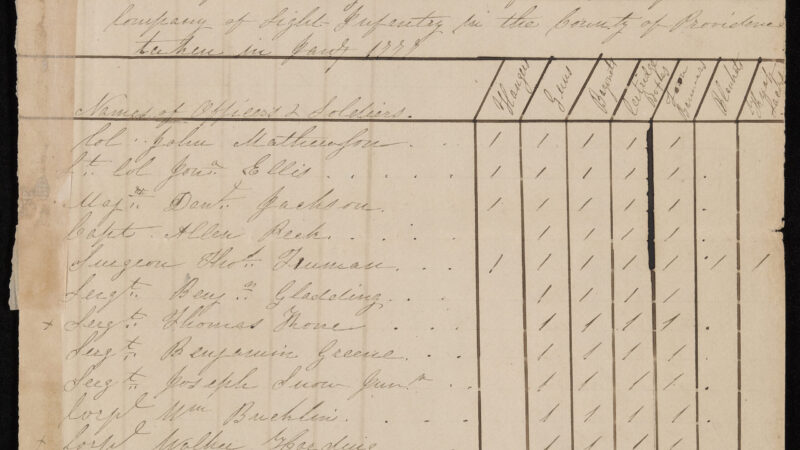 Company of Light Infantry in the County of Providence
taken in Jany 1778
Names of Officers & Soldiers. Hangers Guns Bayonets Cartridge Boxes Blankets
Col. John Mathewson . . . 1 1 1 1 1
Lt. Col Jona Ellis . . . . . 1 1 1 1 1 .
Majr. Danl. Jackson . . 1 1 1 1 1 .
Capt. Allen Peck . . . . 1 1 1 1 .
Surgeon Thos. Truman . . . 1 1 1 1 1 1 1
Sergt. Benjn Gladding . . . 1 1 1 1
x Sergt. Thomas . . . . 1 1 1 1 .
Sergt. Benjamin Greene . . . 1 1 1 1
Sergt. Joseph Snow Junr . . 1 1 1 1
Corpl. Wm Bucklin . . . . 1 1 1 1
x Corpl Harding 1 1 1 1 .